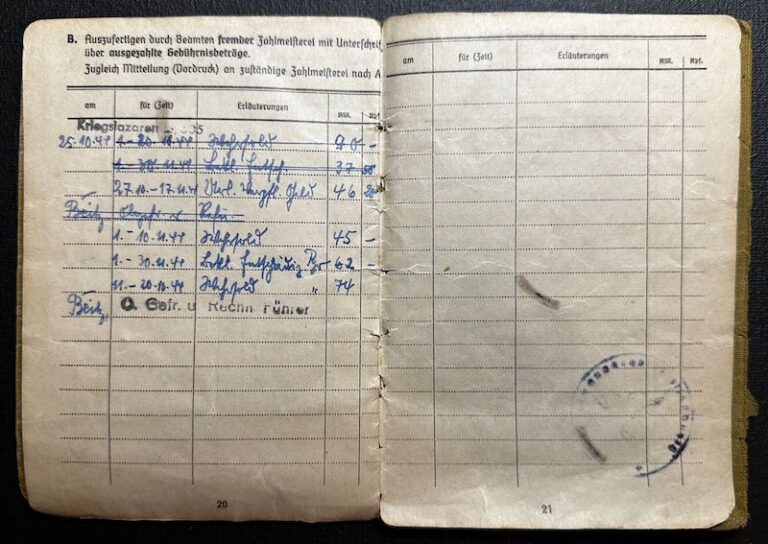 B. Auszufertigen durch Beamten fremder Zahlmeisterei mit Unterschrift
über ausgezahlte Gebührnisbeträge.
Zugleich Mitteilung (Vordruck) an zuständige Zahlmeisterei nach A
am für (Zeit) Erläuterungen RM. Rpf.
Kriegslazarett
25.10.44 1.- 20.11.44 Wehrsold 90 -
1.- 30.11.44 Bekl. Entsch. 37 50
27.10.-17.11.44 Verpfl. Geld 46 20
Beitz
1.- 10.11.44 Wehrsold 45 -
1.- 30.11.44 Bekl. Entschädig 62 -
11.- 20.11.44 Wehrsold " 74
Beitz O. Gefr. u. Rechn Führer
20
am für (Zeit) Erläuterungen RM. Rpf.
21